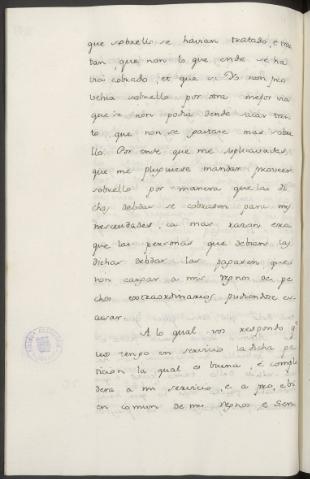 que sobrello se havian tratado, e tra
tan, que non lo que ende se ha
via cobrado, et que si Yo non pro
vehia sobrello por otra mejor via
que se non podia dende sacar tan
to que non se gastase mas sobre
llo. Por ende que me suplicavades
que me pluguiese mandar proveer
sobrello por manera que las di
chas debdas se cobrasen para mis
necesidades, ca mas razon era
que las personas que debian las
dichas debdas las pagasen que
non cargar a mis regnos de pe
chos extraordinarios pudiendose es
cusar.
A lo qual vos respondo q
yo tengo en servicio la dicha pe
ticion la qual es buena, e cumpli
dera a mi servicio, e a pro, e bi
en comun de mis regnos e Sen